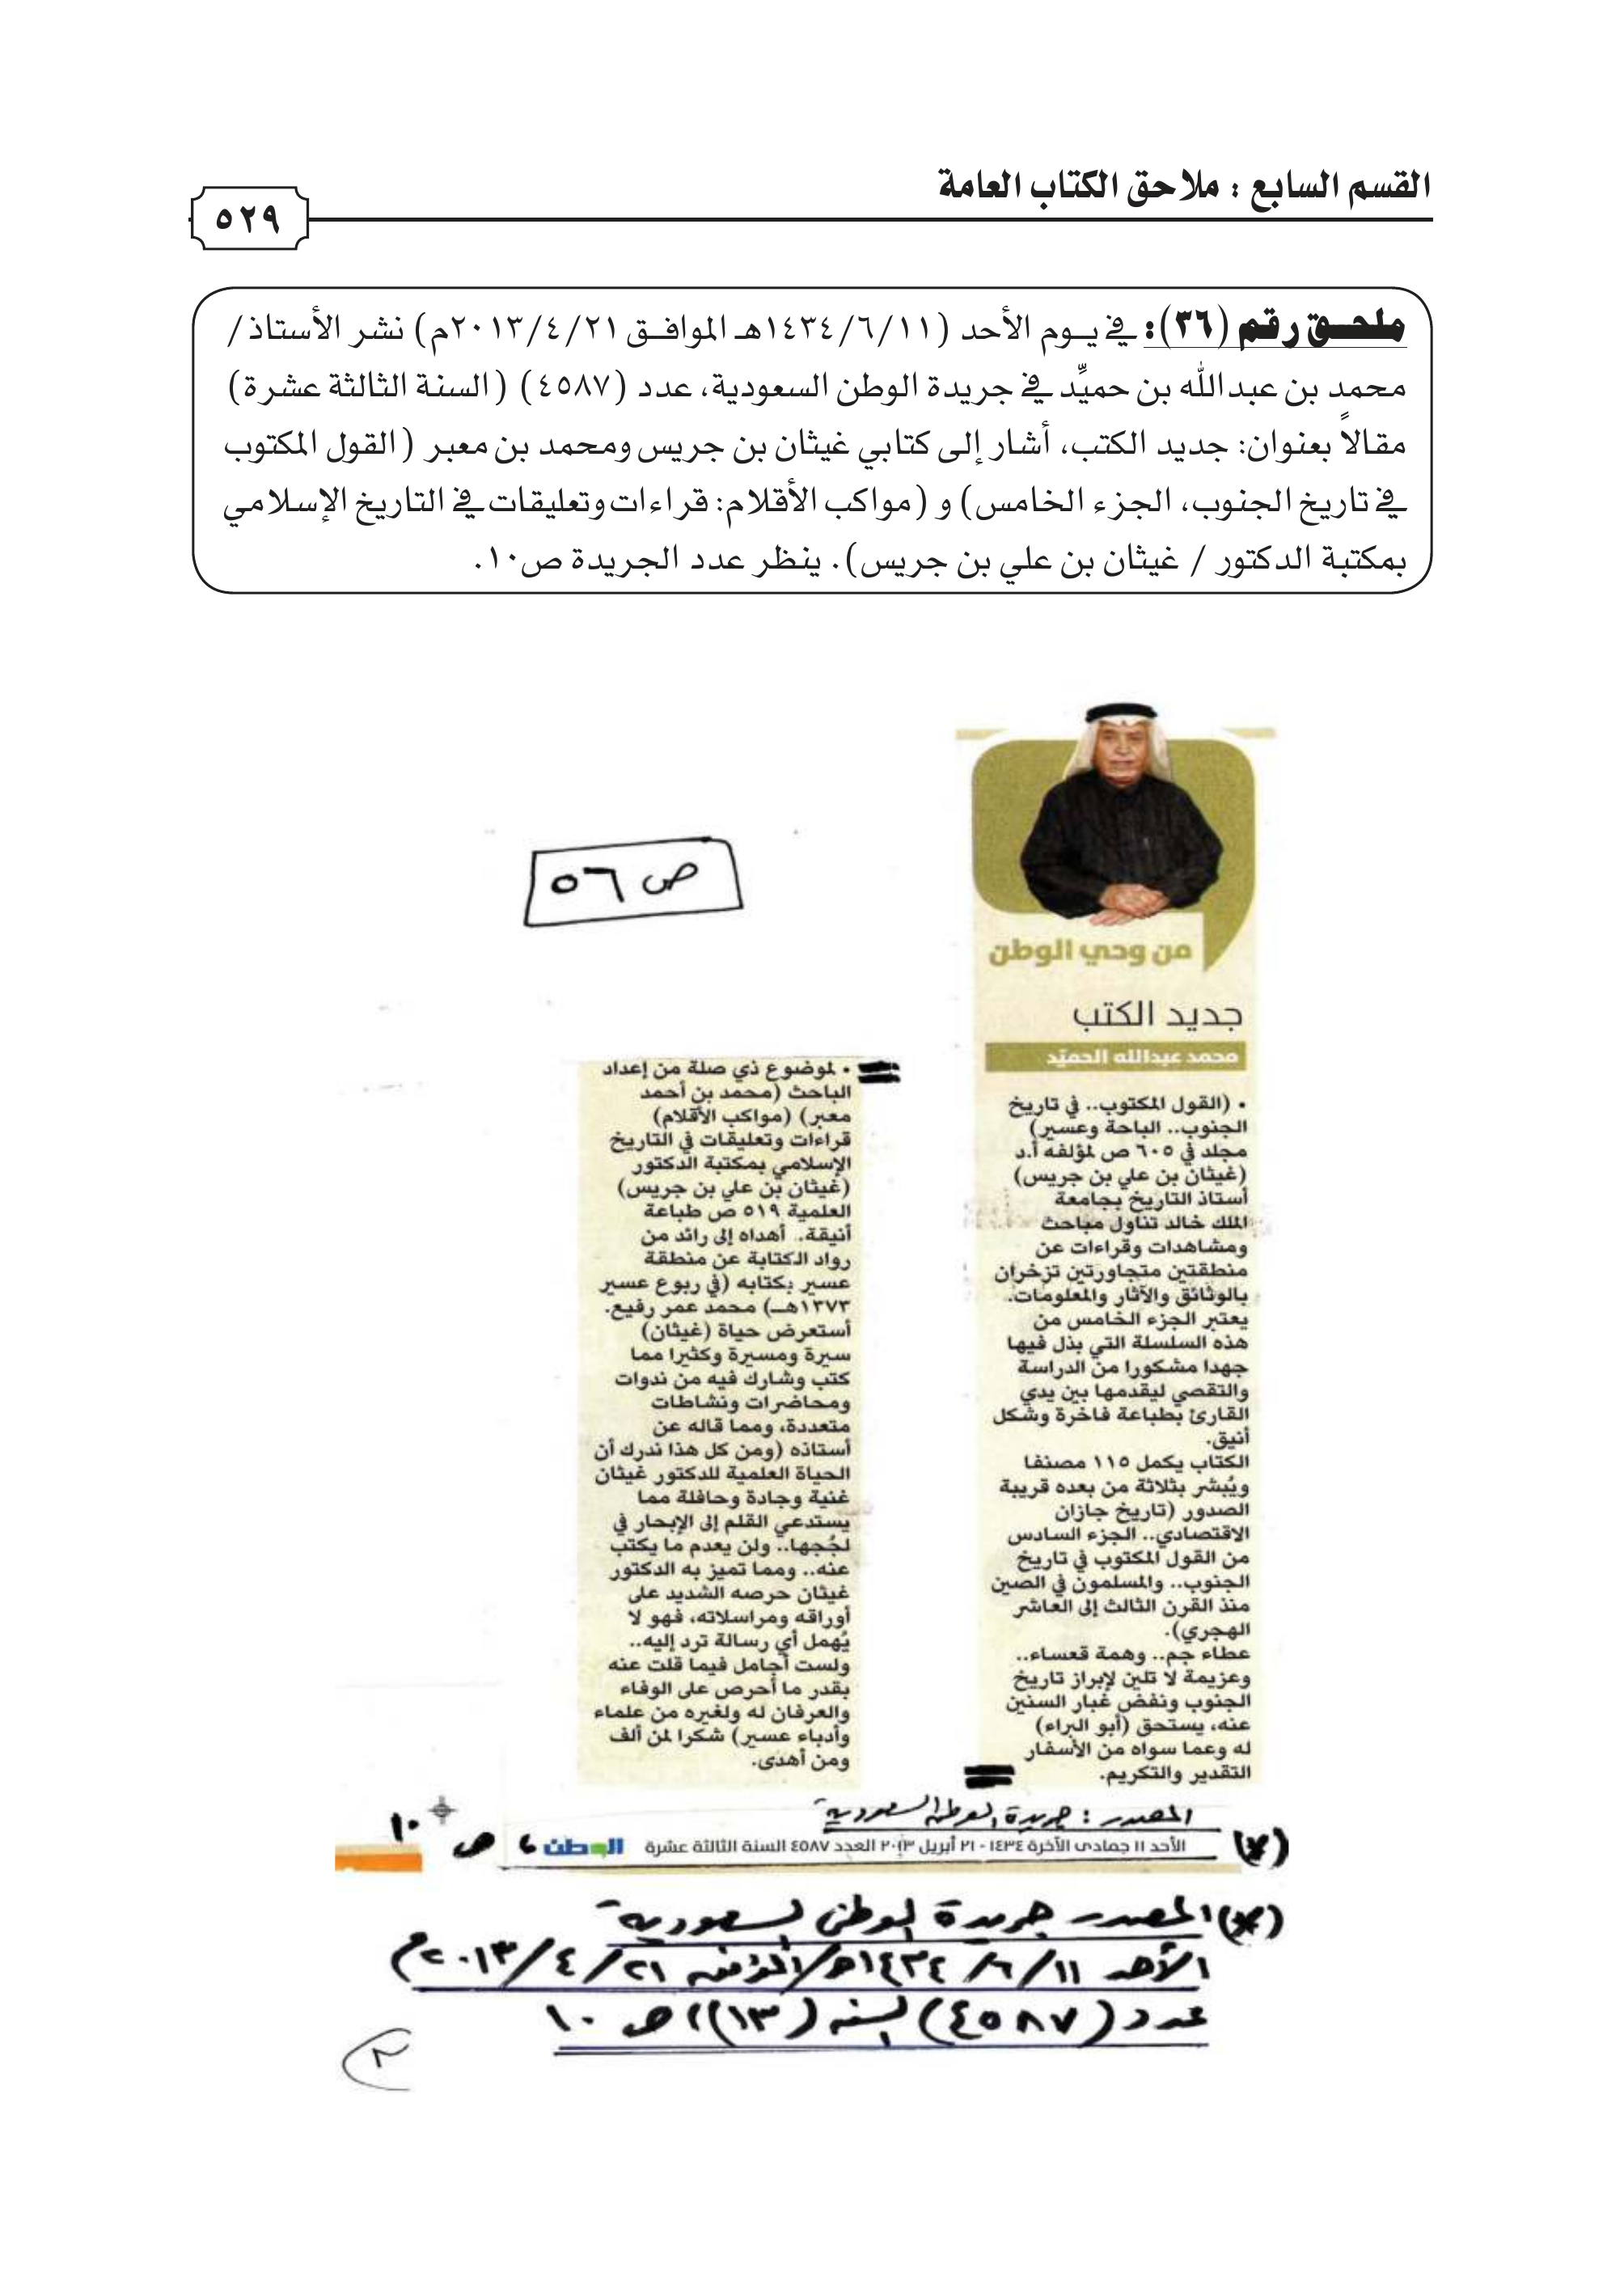 القسم السابع : ملاحق الكتاب العامة
٥٢٩
ملحق رقم (٣٦): في يوم الأحد (١٤٣٤/٦/١١هـ الموافق ٢٠١٣/٤/٢١م) نشر الأستاذ/
محمد بن عبدالله بن حميِّد في جريدة الوطن السعودية، عدد (٤٥٨٧) (السنة الثالثة عشرة)
مقالاً بعنوان: جديد الكتب، أشار إلى كتابي غيثان بن جريس ومحمد بن معبر (القول المكتوب
في تاريخ الجنوب، الجزء الخامس) و (مواكب الأقلام: قراءات وتعليقات في التاريخ الإسلامي
بمكتبة الدكتور / غيثان بن علي بن جريس). ينظر عدد الجريدة ص١٠.
ص ٥٦
من وحي الوطن
جديد الكتب
محمد عبدالله الحميّد
• (القول المكتوب.. في تاريخ
الجنوب.. الباحة وعسير)
مجلد في ٦٠٥ ص لمؤلفه أ.د
(غيثان بن علي بن جريس)
أستاذ التاريخ بجامعة
الملك خالد تناول مباحث
ومشاهدات وقراءات عن
منطقتين متجاورتين تزخران
بالوثائق والآثار والمعلومات.
يعتبر الجزء الخامس من
هذه السلسلة التي بذل فيها
جهدا مشكورا من الدراسة
والتقصي ليقدمها بين يدي
القارئ بطباعة فاخرة وشكل
أنيق.
الكتاب يكمل ١١٥ مصنفا
ويُبشر بثلاثة من بعده قريبة
الصدور (تاريخ جازان
الاقتصادي.. الجزء السادس
من القول المكتوب في تاريخ
الجنوب.. والمسلمون في الصين
منذ القرن الثالث إلى العاشر
الهجري).
عطاء جم.. وهمة قعساء..
وعزيمة لا تلين لإبراز تاريخ
الجنوب ونفض غبار السنين
عنه، يستحق (أبو البراء)
له وعما سواه من الأسفار
التقدير والتكريم.
• لموضوع ذي صلة من إعداد
الباحث (محمد بن أحمد
معبر) (مواكب الأقلام)
قراءات وتعليقات في التاريخ
الإسلامي بمكتبة الدكتور
(غيثان بن علي بن جريس)
العلمية ٥١٩ ص طباعة
أنيقة.. أهداه إلى رائد من
رواد الكتابة عن منطقة
عسير بكتابه (في ربوع عسير
١٣٧٣هـ) محمد عمر رفيع.
أستعرض حياة (غيثان)
سيرة ومسيرة وكثيرا مما
كتب وشارك فيه من ندوات
ومحاضرات ونشاطات
متعددة، ومما قاله عن
أستاذه (ومن كل هذا ندرك أن
الحياة العلمية للدكتور غيثان
غنية وجادة وحافلة مما
يستدعي القلم إلى الإبحار في
لجُجها.. ولن يعدم ما يكتب
عنه.. ومما تميز به الدكتور
غيثان حرصه الشديد على
أوراقه ومراسلاته، فهو لا
يُهمل أي رسالة ترد إليه..
ولست أجامل فيما قلت عنه
بقدر ما أحرص على الوفاء
والعرفان له ولغيره من علماء
وأدباء عسير) شكرا لمن ألف
ومن أهدى.
المصدر : جريدة الوطن السعودية
(*) الأحد ١١ جمادى الآخرة ١٤٣٤ - ٢١ أبريل ٢٠١٣ العدد ٤٥٨٧ السنة الثالثة عشرة الوطن ، ص ١٠
(*) المصدر جريدة الوطن السعودية
الأحد ١١/ ٦/ ١٤٣٤هـ/الموافق ٢١/ ٤/ ٢٠١٣م
عدد (٤٥٨٧) السنة (١٣)) ص ١٠
٢